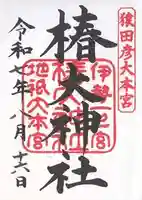 猿田彦大本宮
椿大神社
伊勢一之宮
地祇大本宮
令和七年八月十六日